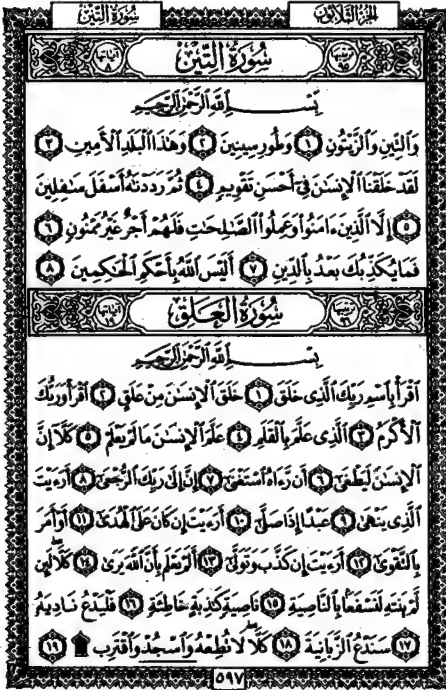 سُورَةُ التِّينِ الجُزءُ الثَّلَاثُونَ
آياتها ٨ سُورَةُ التِّينِ ترتيبها ٩٥
بِسْمِ اللَّهِ الرَّحْمَٰنِ الرَّحِيمِ
وَالتِّينِ وَالزَّيْتُونِ ١ وَطُورِ سِينِينَ ٢ وَهَٰذَا الْبَلَدِ الْأَمِينِ ٣
لَقَدْ خَلَقْنَا الْإِنسَٰنَ فِي أَحْسَنِ تَقْوِيمٍ ٤ ثُمَّ رَدَدْنَٰهُ أَسْفَلَ سَٰفِلِينَ
٥ إِلَّا الَّذِينَ ءَامَنُوا وَعَمِلُوا الصَّٰلِحَٰتِ فَلَهُمْ أَجْرٌ غَيْرُ مَمْنُونٍ ٦
فَمَا يُكَذِّبُكَ بَعْدُ بِالدِّينِ ٧ أَلَيْسَ اللَّهُ بِأَحْكَمِ الْحَٰكِمِينَ ٨
آياتها ١٩ سُورَةُ الْعَلَقِ ترتيبها ٩٦
بِسْمِ اللَّهِ الرَّحْمَٰنِ الرَّحِيمِ
اقْرَأْ بِاسْمِ رَبِّكَ الَّذِي خَلَقَ ١ خَلَقَ الْإِنسَٰنَ مِنْ عَلَقٍ ٢ اقْرَأْ وَرَبُّكَ
الْأَكْرَمُ ٣ الَّذِي عَلَّمَ بِالْقَلَمِ ٤ عَلَّمَ الْإِنسَٰنَ مَا لَمْ يَعْلَمْ ٥ كَلَّا إِنَّ
الْإِنسَٰنَ لَيَطْغَىٰ ٦ أَن رَّءَاهُ اسْتَغْنَىٰ ٧ إِنَّ إِلَىٰ رَبِّكَ الرُّجْعَىٰ ٨ أَرَءَيْتَ
الَّذِي يَنْهَىٰ ٩ عَبْدًا إِذَا صَلَّىٰ ١٠ أَرَءَيْتَ إِن كَانَ عَلَى الْهُدَىٰ ١١ أَوْ أَمَرَ
بِالتَّقْوَىٰ ١٢ أَرَءَيْتَ إِن كَذَّبَ وَتَوَلَّىٰ ١٣ أَلَمْ يَعْلَم بِأَنَّ اللَّهَ يَرَىٰ ١٤ كَلَّا لَئِن
لَّمْ يَنتَهِ لَنَسْفَعًا بِالنَّاصِيَةِ ١٥ نَاصِيَةٍ كَٰذِبَةٍ خَاطِئَةٍ ١٦ فَلْيَدْعُ نَادِيَهُ
١٧ سَنَدْعُ الزَّبَانِيَةَ ١٨ كَلَّا لَا تُطِعْهُ وَاسْجُدْ وَاقْتَرِب ۩ ١٩
٥٩٧